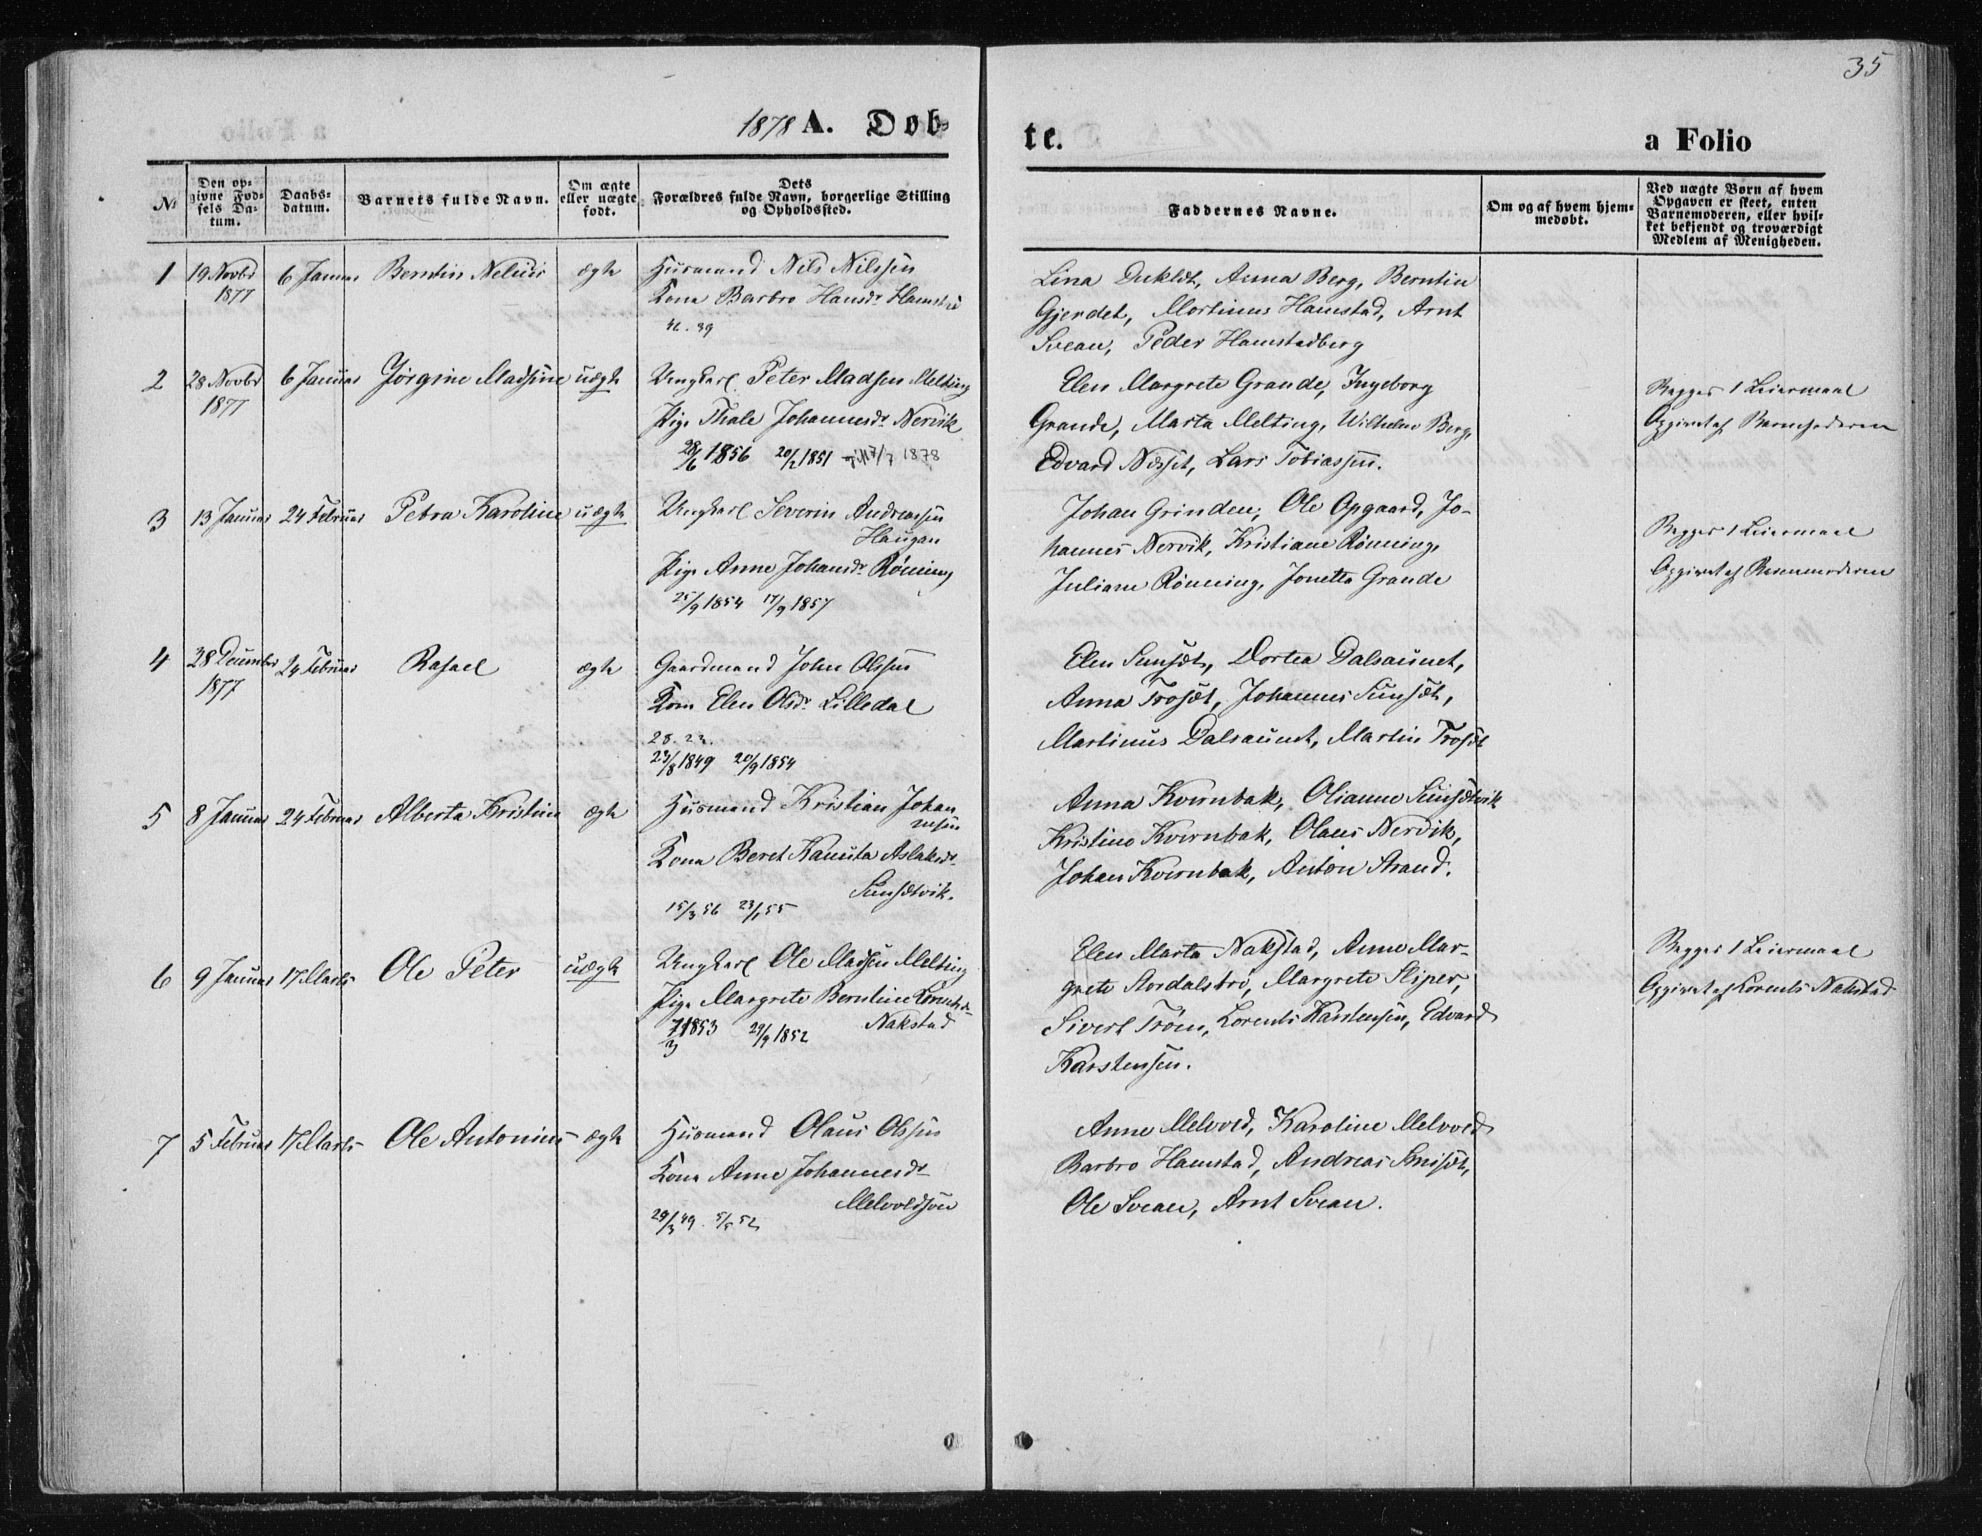 35
1878 A. Døb-
te.
a Folio
№
Den op-
givne Fød-
sels Da-
tum.
Daabs-
datum.
Barnets fulde Navn.
Om ægte
eller uægte
født.
Dets
Forældres fulde Navn, borgerlige Stilling
og Opholdssted.
Faddernes Navne.
Om og af hvem hjem-
medøbt.
Ved uægte Børn af hvem
Opgaven er skeet, enten
Barnemoderen, eller hvil-
ket bekjendt og troværdigt
Medlem af Menigheden.
1
19 Novbr
1877
6 Januar
Berntin
ægte
Husmand Nils Nilssen
Kona Barbro Hansdr Hamstad
42. 39
Lina Anna Berg, Berntin
Gjerdet, Martinus Hamstad, Arnt
Svean, Peder Hamstadberg
2
28 Novbr
1877
6 Januar
Jørgine Madsine
uægte
Ungkarl Peter Madsen Melting
Pige Thale Johannesdr Nervik
28/6 1856 20/2 1851 17/7 1878
Elen Margrete Grande, Ingeborg
Grande, Marta Melting, Wilhelm Berg,
Edvard Næsset, Lars Tobiassen.
Begges 1 Leiermaal
Opgivet af Barnefaderen
3
13 Januar
24 Februar
Petra Karoline
uægte
Ungkarl Severin Andreassen
Haugan
Pige Anne Johansdr Rønning
25/9 1854 17/9 1857
Johan Grinden, Ole Opgaard, Jo-
hannes Nervik, Kristiane Rønning,
Juliane Rønning, Jonetta Grande
Begges 1 Leiermaal
Opgivet af Barnemoderen
4
28 December
1877
24 Februar
Rafael
ægte
Gaardmand John Olssen
Kone Elen Olsdr Lilledal
28. 23.
23/8 1849 20/9 1854
Elen Sunsæt, Dortea Dalsaunet,
Anna Trosæt, Johannes Sunsæt,
Martinus Dalsaunet, Martin Trosæt
5
8 Januar
24 Februar
Alberta Kristine
ægte
Husmand Kristian Johan
nsen
Kona Beret Kanuta Aslaksdr
Sunsætvik.
15/3 56 23/1 55
Anna Kvernbak, Olianne Sunsætvik
Kristine Kvernbak, Olaus Nervik,
Johan Kvernbak, Anton Strand.
6
9 Januar
17 Marts
Ole Peter
uægte
Ungkarl Ole Madsen Melting
Pige Margrete Berntine Lorentsd-
Nakstad
7/3 1853 29/9 1852
Elen Marta Nakstad, Anne Mar-
grete Stordalsbro, Margrete Sliper,
Sivert Trøen, Lorents Karstensen, Edvard
Karstensen.
Begges 1 Leiermaal
Opgivet af Lorents Nakstad
7
5 Februar
17 Marts
Ole Antonius
ægte
Husmand Olaus Olssen
Kona Anne Johannesdr
29/3 49. 5/5 52
Anne Melvold, Karoline Melvold
Barbro Hamstad, Andreas
Ole Svean, Arnt Svean.